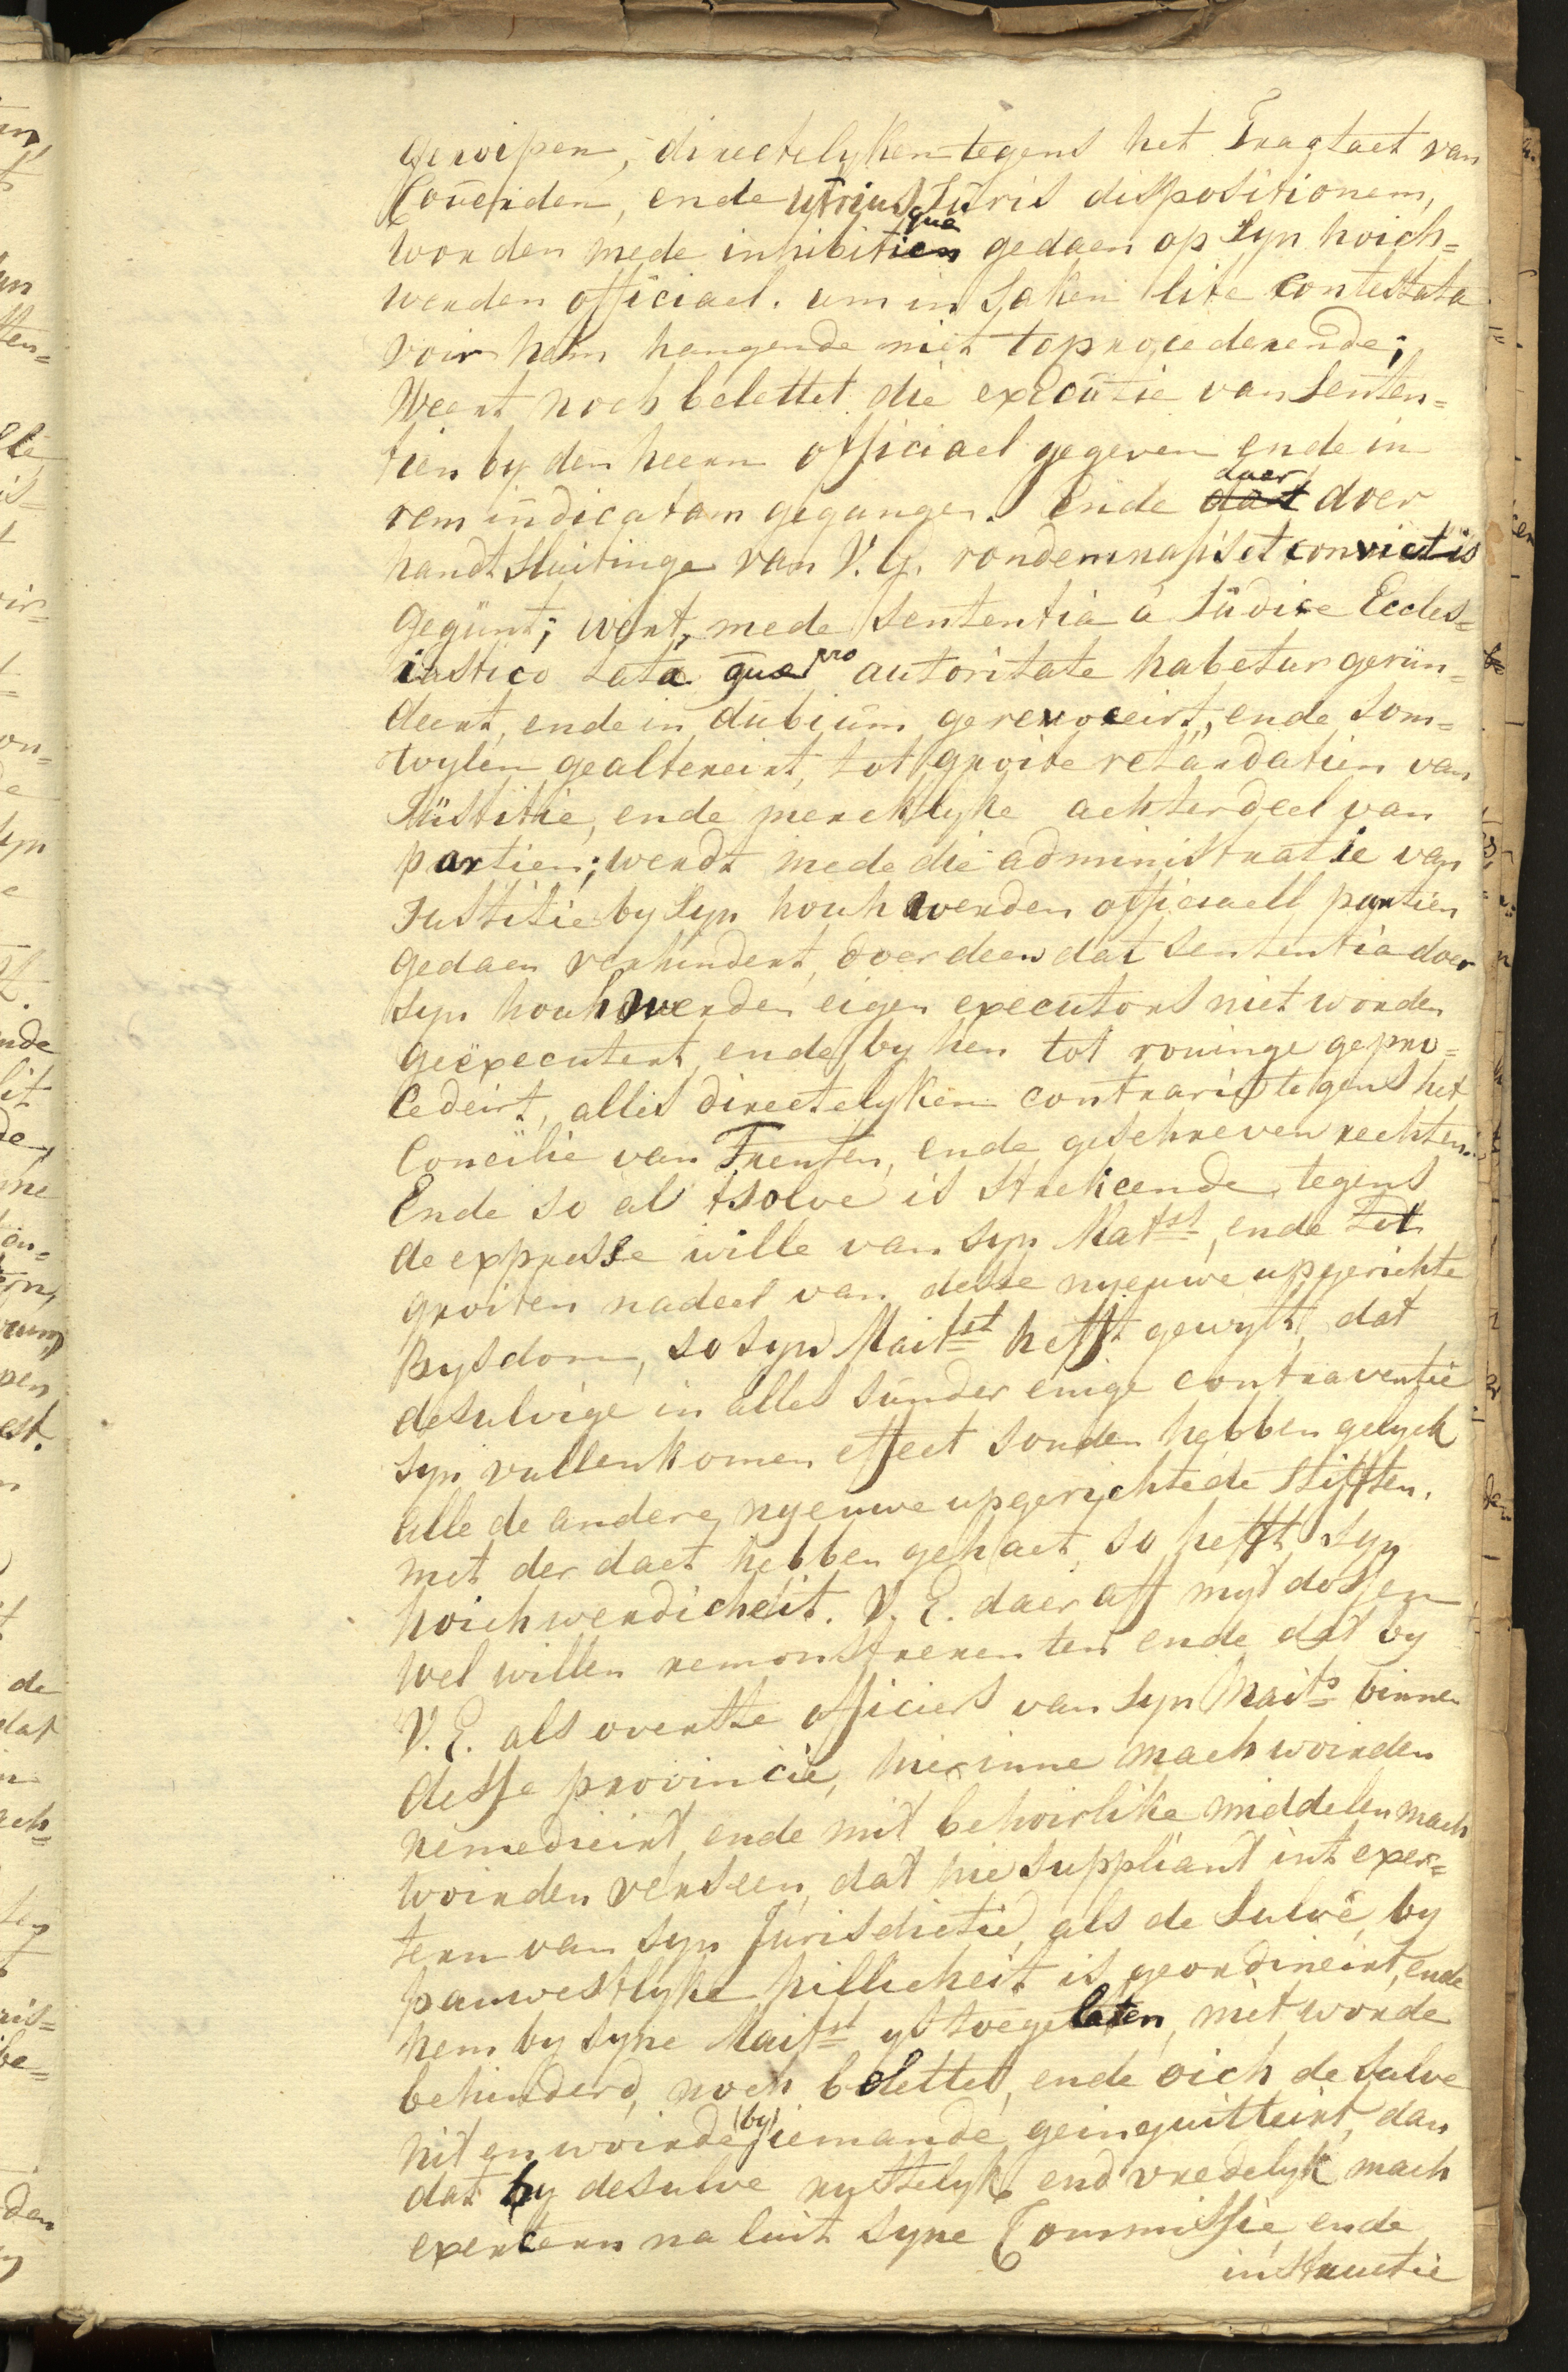 gewipen, directelyken tegens het Tragtaet van
Couerden, ende utriusque Juris dispositionem,
worden mede inhibitien gedaen op Syn hoich=
werden officiael. um in Saken lite contestata
voir hem hangende niet to procederende;
Weert noch belettet die executie van Senten=
tien by den heern officiael gegeven ende in
rem iudicatam gegangen. Ende daer doer
handt sluitinge van V. G. condemnatis et convictis
gegunt; wert, mede Sententia a Judice Eccles=
iastico Lata que pro autoritate habetur gerün=
deert, ende in dubium gerevoceirt, ende som=
wylen gealtereirt, tot groite retardatien van
Justitie, ende mercklyke achterdeel van
partien; werdt mede die administratie van
Justitie by Syn houhwerden officiaell partien
gedaen verhindert, doer deen dat Sententia doer
syn houhwerden eigen executors niet worden
geëxecutert, ende by hen tot rouinge gepro=
cedeirt, alles directelyken contrarie tegens het
Concilie van Trenten, ende geschreven rechten.
Ende so al tsolve is streckende tegens
de expresse wille van syn Matst, ende tot
groiten nadeel van desse nyeuwe upgerichte
Bysdom, so syn Maitst hefft gewylt, dat
desulvige in alles sunder enige contraventie
syn vullenkomen effect souden hebben gelyck
alle de andere nyeuwe upgerichtede stifften,
met der daet hebben gehaet, so hefft syn
hoichwerdicheit. V. E. daer aff myt dossen
wel willen remonstreren ten ende dat by
V. E. als overtste officiers van syn Maits binnen
desse provincie, hierinne mach woirden
remedieirt, ende mit behoirlike middelen mach
woirden verseen, dat hie suppliant int exer=
tern van syn Jurisdictie, als de sulve, by
pauwestlyke hillicheit is geordineirt, ende
hem by syne Maitst ys toegelaten, niet worde
behinderd, noch belettet, ende oich de sulve
nit en woirde (by) iemande geinquitteirt, dan
dat hy desulve rustelyk end vredelyk mach
exercern na luit syne Commissie, ende
instructie